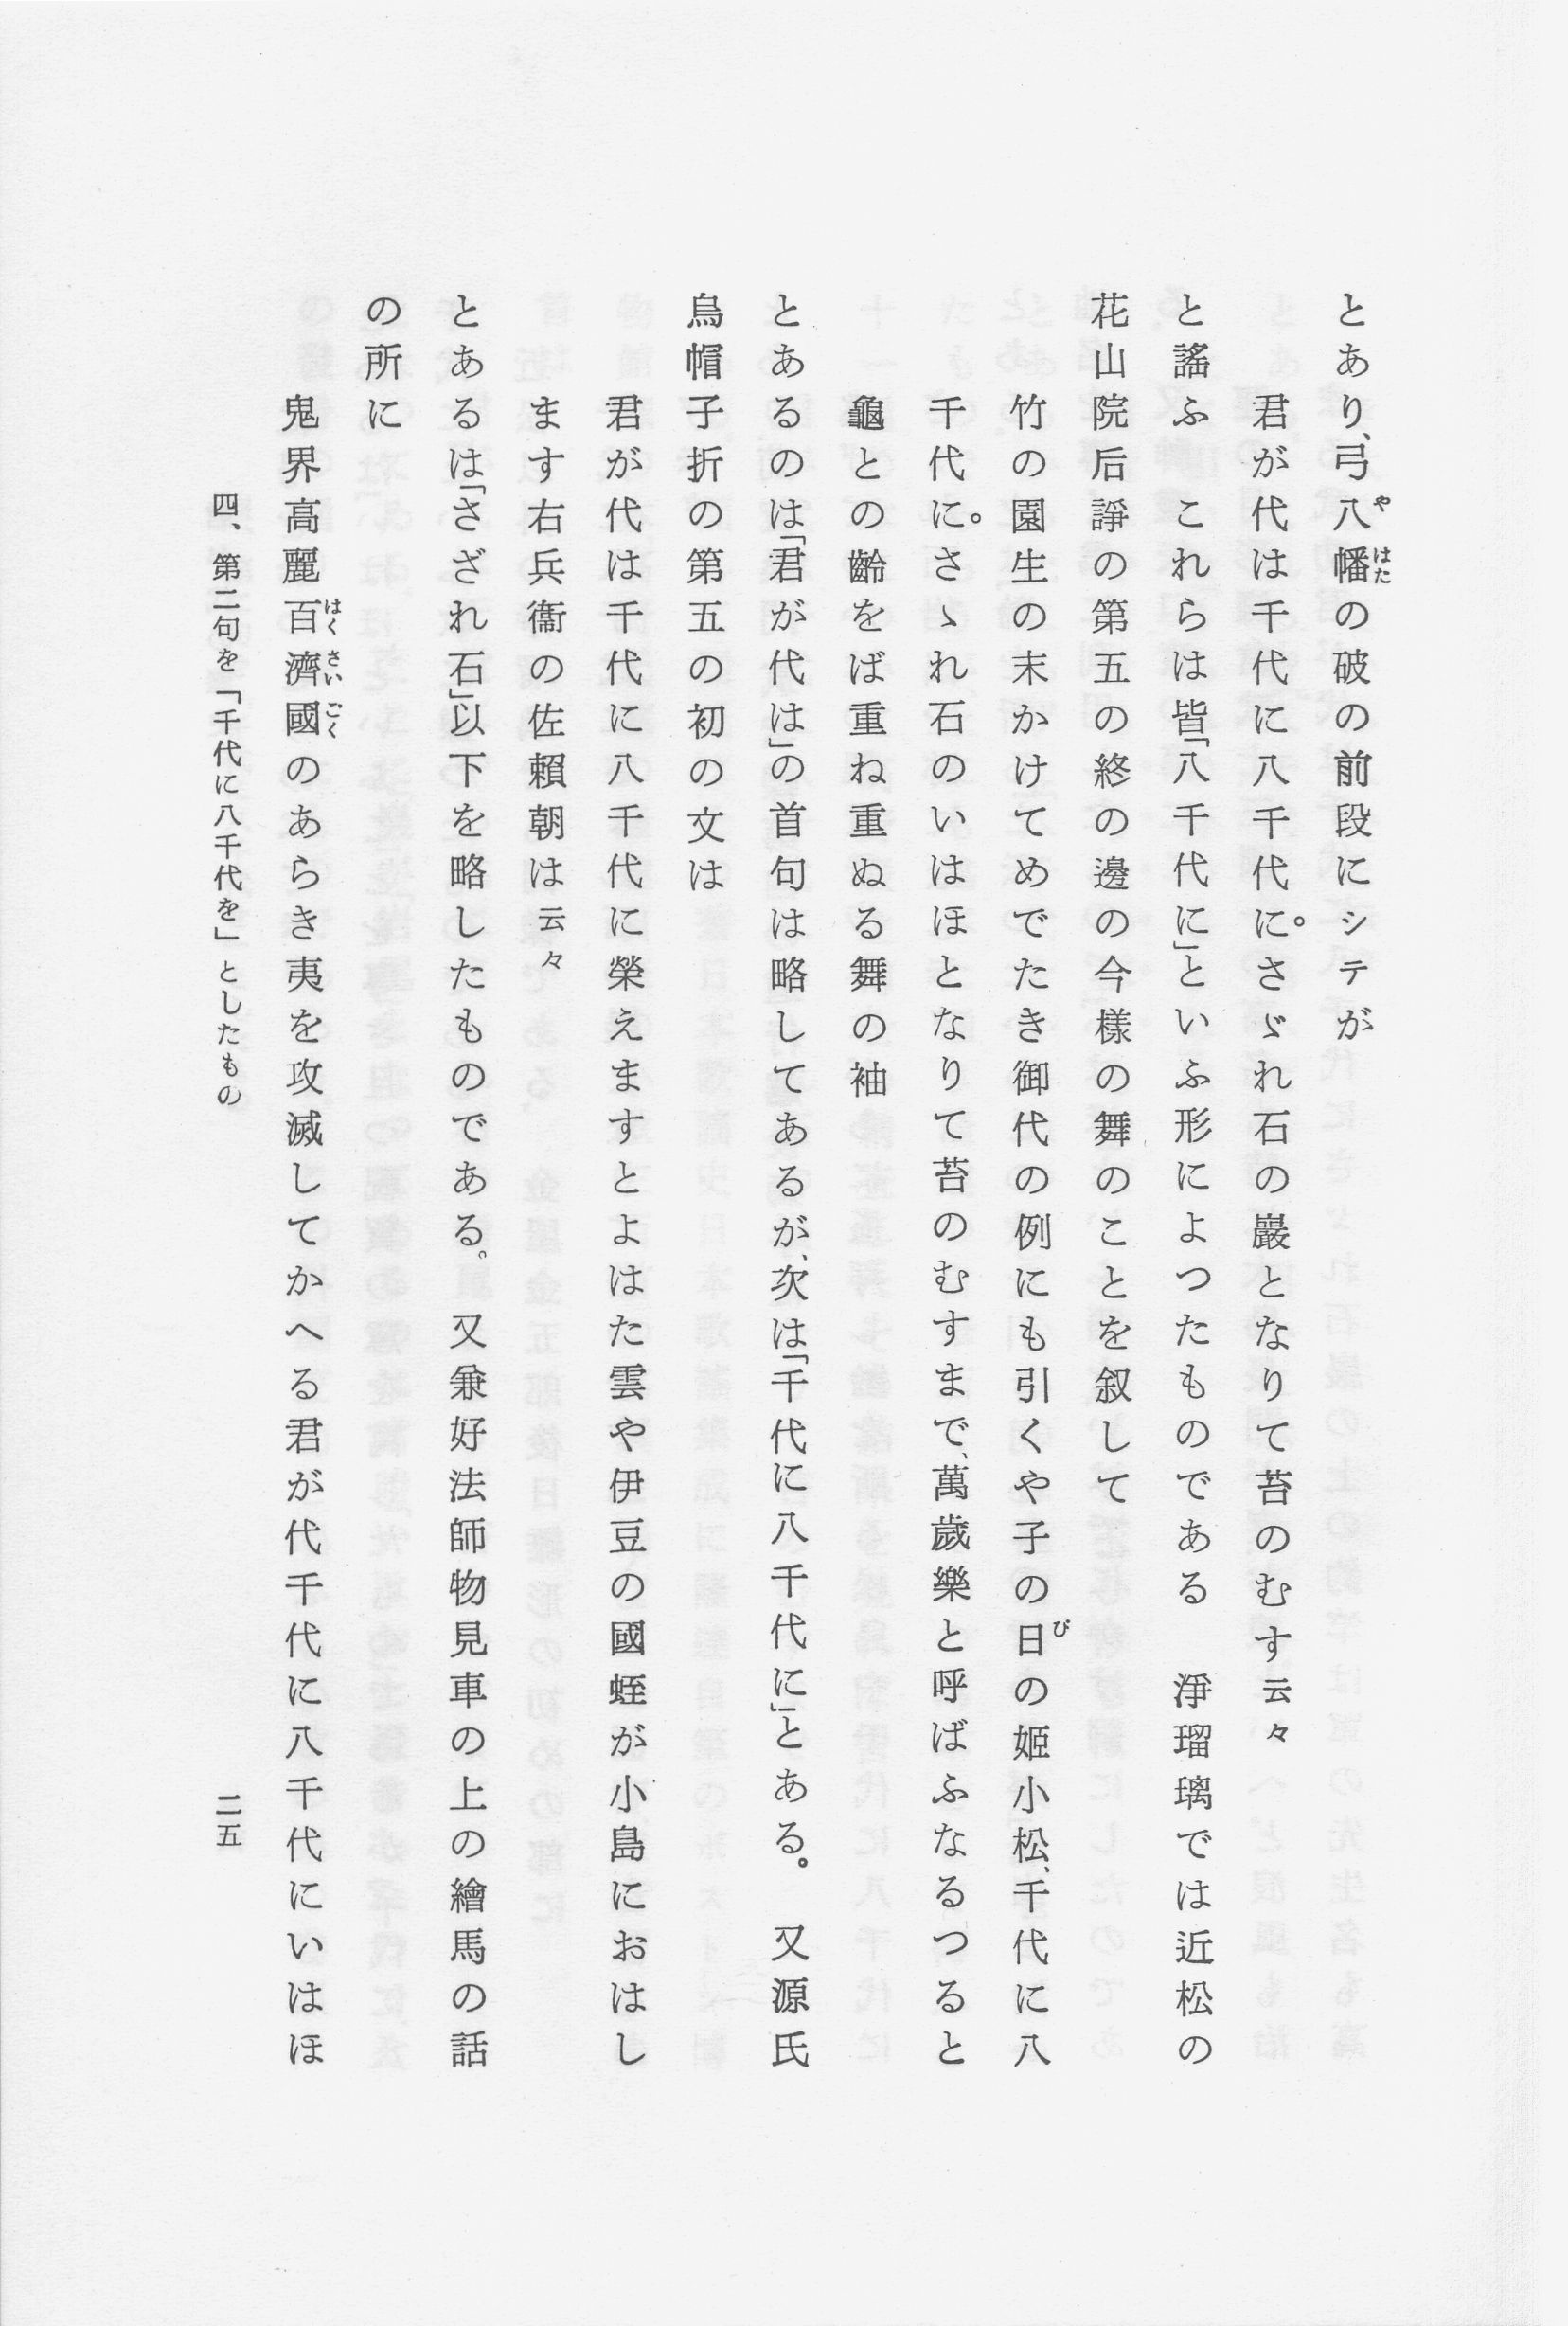 とあり、弓八幡の破の前段にシテが
君が代は千代に八千代に。さゞれ石の巖となりて苔のむす云々
と謠ふ　これらは皆「八千代に」といふ形によつたものである　淨瑠璃では近松の
花山院后諍の第五の終の邊の今樣の舞のことを叙して
竹の園生の末かけてめでたき御代の例にも引くや子の日の姬小松、千代に八
千代に。さゝれ石のいはほとなりて苔のむすまで、萬歲樂と呼ばふなるつると
龜との齡をば重ね重ぬる舞の袖
とあるのは「君が代は」の首句は略してあるが、次は「千代に八千代に」とある。　又源氏
烏帽子折の第五の初の文は
君が代は千代に八千代に榮えますとよはた雲や伊豆の國蛭が小島におはし
ます右兵衞の佐賴朝は云々
とあるは「さざれ石」以下を略したものである。　又兼好法師物見車の上の繪馬の話
の所に
鬼界高麗百濟國のあらき夷を攻滅してかへる君が代千代に八千代にいはほ
四、第二句を「千代に八千代を」としたもの　二五